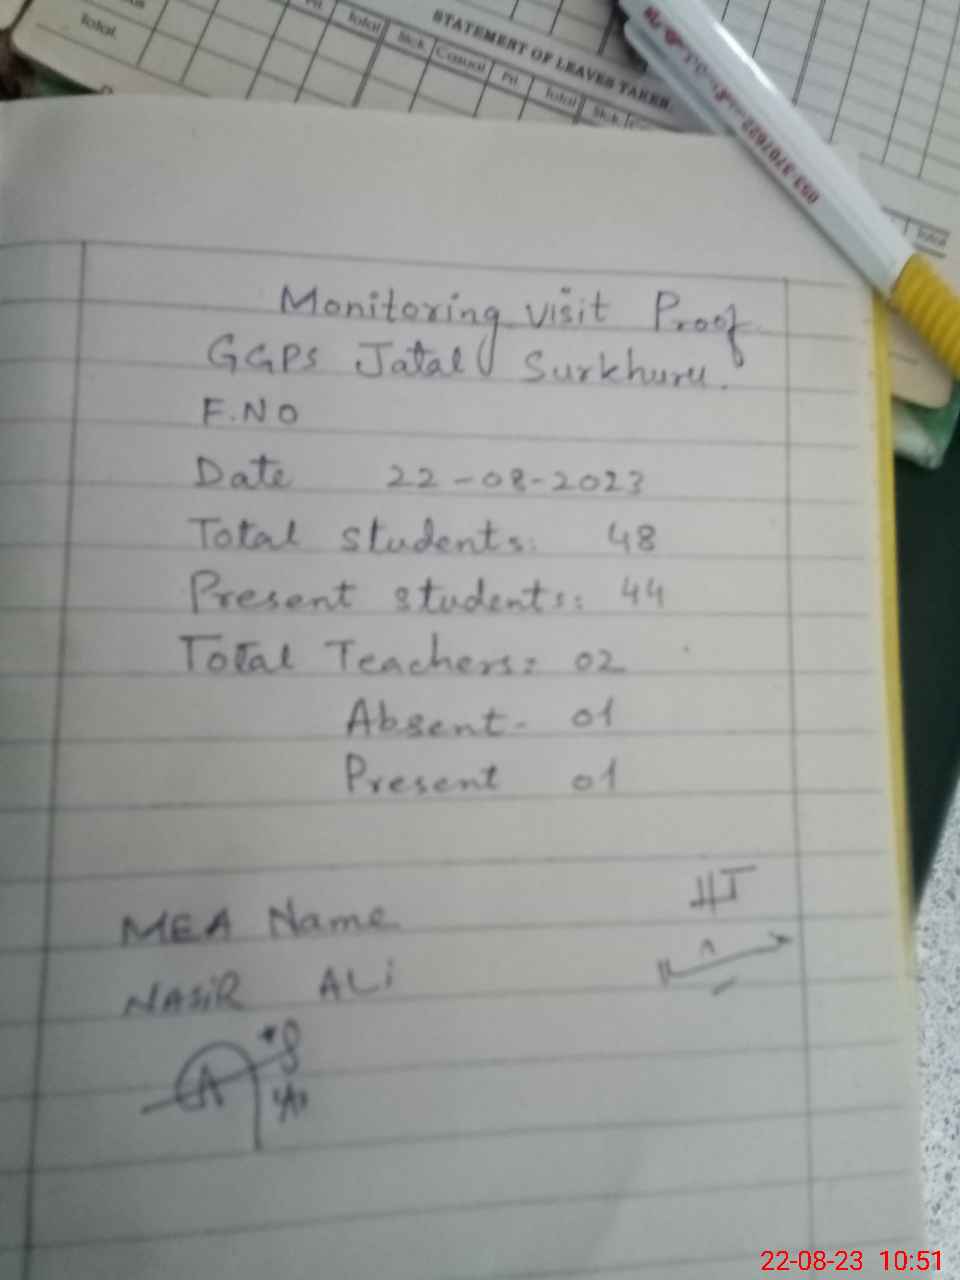 Total
Pri.
Total
Sick
Casual
Pri.
Total
Sick
STATEMENT OF LEAVES TAKEN
053-3707622
Total
Monitoring visit Proof.
GGPS Jatal Surkhuru.
F.NO
Date 22-08-2023
Total students: 48
Present students: 44
Total Teachers: 02
Absent- 01
Present 01
HT
MEA Name
NASiR ALi
22-08-23 10:51